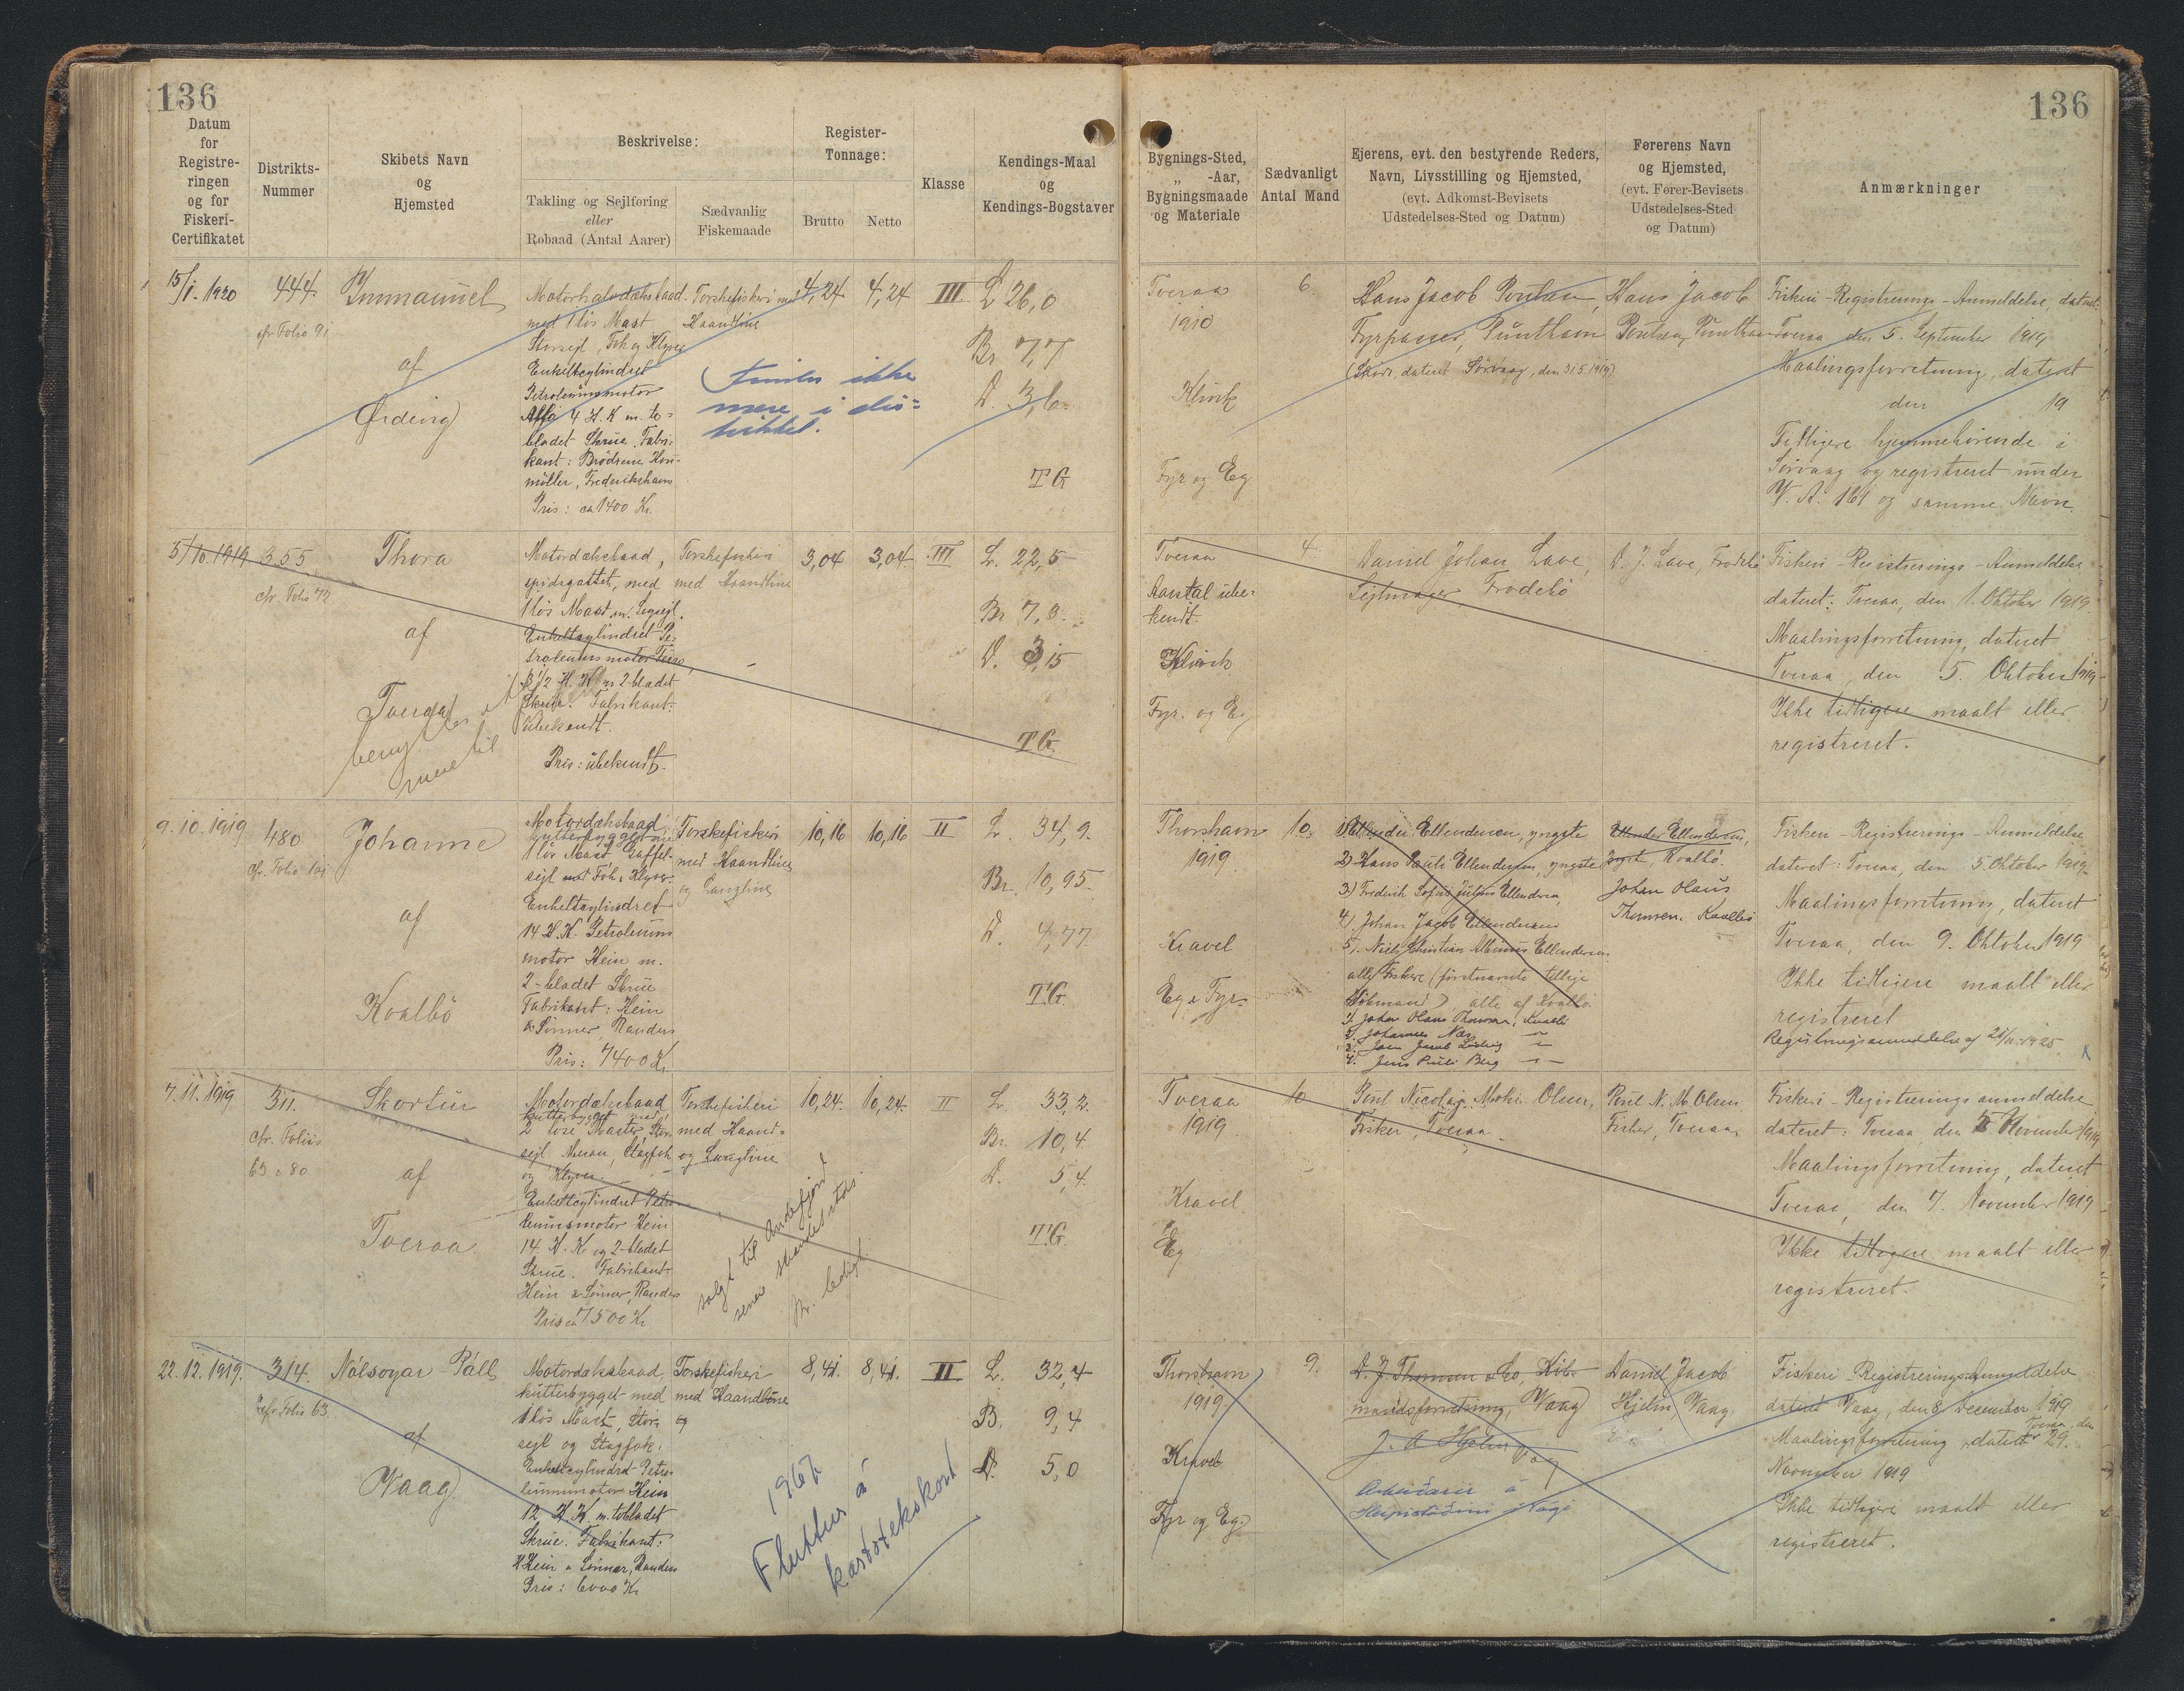 136
136
Datum
for
Registre-
ringen
og for
Fiskeri-
Certifikatet
Distrikts-
Nummer
Skibets Navn
og
Hjemsted
Beskrivelse:
Takling og Sejlføring
eller
Robaad (Antal Aarer)
Sædvanlig
Fiskemaade
Register-
Tonnage:
Brutto
Netto
Klasse
Kendings-Maal
og
Kendings-Bogstaver
Bygnings-Sted,
„ -Aar,
Bygningsmaade
og Materiale
Sædvanligt
Antal Mand
Ejerens, evt. den bestyrende Reders,
Navn, Livsstilling og Hjemsted,
(evt. Adkomst-Bevisets
Udstedelses-Sted og Datum)
Førerens Navn
og Hjemsted,
(evt. Fører-Bevisets
Udstedelses-Sted
og Datum)
Anmærkninger
15/1. 1920
444.
cfr Folio 91
Immanuel
af
Ørding
Motorhalvdæksbaad
med 1 løs Mast
Storsejl, Fok og Klyver
Enkeltcylindret
Petroleumsmotor
Alfa 4 H.K m. to-
bladet Skrue. Fabri-
kant: Brödrene Hou-
möller, Frederikshavn
Pris: ca 1400 Kr.
Torskefiskeri med
Haandline
findes ikke
mere i dis-
triktet.
4,24
4,24
III
L 26,0
Br 7,7
D. 3,6
TG
Tveraa
1910
Klink
Fyr og Eg
6.
Hans Jacob Poulsen,
Fyrpasser, Punthavn
(Sköde, dateret Sörvaag, den 31 5 1919)
Hans Jacob
Poulsen, Punthavn
Fiskeri-Registrerings-Anmeldelse, dateret
Tveraa den 5. September 1919
Maalingsforretning, dateret
den 19
Tidligere hjemmehörende i
Sörvaag og registreret under
V. A. 161 og samme Navn.
5/10.1919
355
cfr. Folio 72
Thora
af
Tveraa
mere til
Motordæksbaad,
spidsgattet, med
1 løs Mast m.
Enkeltcylindret Pe-
troleumsmotor
3 1/2 H. K. m 2-bladet
Skrue. Fabrikant:
Ubekendt.
Pris: ubekendt.
Torskefiskeri
med Haandline
3,04
3,04
III
L. 22,5
Br 7,8
D. 3,15
TG.
Tveraa
Aarstal ube-
kendt.
Klink
Fyr. og Eg
4.
Daniel Johan Lave,
Sejlmager, Frodebö
D. J. Lave, Frodebö
Fiskeri-Registrerings-Anmeldelse
dateret: Tveraa, den 1. Oktober 1919
Maalingsforretning, dateret
Tveraa, den 5. Oktober 1919
Ikke tidligere maalt eller
registreret.
9.10.1919
480
cfr. Folio 101
Johanne
af
Kvalbö
Motordæksbaad,
kutterbygget med
1 løs Mast Gaffel-
sejl Fok & Klyver
Enkeltcylindret
14 H.K. Petroleums
motor Hein m.
2-bladet Skrue
Fabrikant: Hein
& Sönner, Randers
Pris: 7400 Kr
Torskefiskeri
med Haandline
og Langline
10,16
10,16
II
L. 34,9.
Br. 10,95.
D. 4,77
TG.
Thorshavn
1919.
Kravel
Eg & Fyr
10.
1) Ellendersen, yngste
2) Hans Pauli Ellendersen, yngste
3) Fredrik Sofus Julius Ellendersen
4). Johan Jacob Ellendersen
5). Niels Christian Albinus Ellendersen
alle Fiskere (förstnævnte tillige
Sömand) alle af Kvalbö
1. Johan Olaus Thomsen, Kvalbö
2. Johannes Næs
3. Joen Jacob Ludvig
4. Jens Pauli Berg
Ellender Ellendersen,
yngst, Kvalbö.
Johan Olaus
Thomsen, Kvalbö
Fiskeri-Registrerings-Anmeldelse
dateret: Tveraa, den 5. Oktober 1919
Maalingsforretning, dateret
Tveraa, den 9. Oktober 1919
Ikke tidligere maalt eller
registreret
Registringsanmeldelse af 21/11 1925
7.11.1919
311.
cfr. Folio
63 & 80
Skortur
af
Tveraa
Motordæksbaad
kutterbygget med
2 løse Master, Stor-
sejl Mesan, Stagfok
og Klyver
Enkeltcylindret Petro-
leumsmotor Hein
14. H. K. og 2-bladet
Skrue. Fabrikant:
Hein & Sönner, Randers
Pris ca 7500 Kr
Torskefiskeri
med Haand-
og Langline
solgt til Andefjord
senere
nr. ledigt
10,24.
10,24.
II
L. 33,2.
Br. 10,4
D. 5,4.
TG.
Tveraa
1919
Kravel
Eg
10
Poul Nicolaj Mohr Olsen,
Fisker, Tveraa.
Poul N. M. Olsen
Fisker, Tveraa,
Fiskeri-Registreringsanmeldelse
dateret: Tveraa den 5 November 1919
Maalingsforretning, dateret
Tveraa, den 7. November 1919
Ikke tidligere maalt eller
registreret.
22.12.1919.
314.
cfr Folio 63
Nólsoyar-Páll
af
Vaag
Motordæksbaad,
kutterbygget med
1 løs Mast, Stor-
sejl og Stagfok.
Enkeltcylindret Petro-
leumsmotor Hein
12 H.K. m. tobladet
Skrue. Fabrikant:
H. Hein & Sönner, Randers
Pris: 6000 Kr
Torskefiskeri
med Haandline
og
1967
Fluttur á
kartotekskort
8,41.
8,41.
II
L. 32,4
B. 9,4
D. 5,0
Thorshavn
1919.
Kravel
Fyr og Eg.
9.
D. J. Thomsen & Co, Köb-
mandsforretning, Vaag
J. A Hjelm
Arbeiðarir á
Vági
Daniel Jacob
Hjelm, Vaag.
Fiskeri-Registrerings-Anmeldelse
dateret Vaag, den 8 December 1919
Maalingsforretning, dateret Tveraa, den
29.
November 1919
Ikke tidligere maalt eller
registreret.